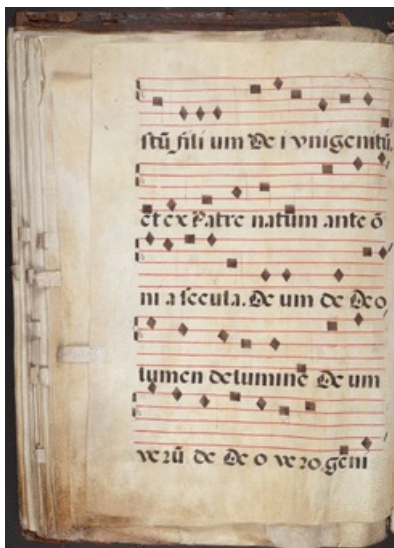 stũ fili um De i vnigenitũ.
et ex Patre natum ante õ
ni a secula. De um de Deo
lumen delumine De um
verũ de De o vero. geni